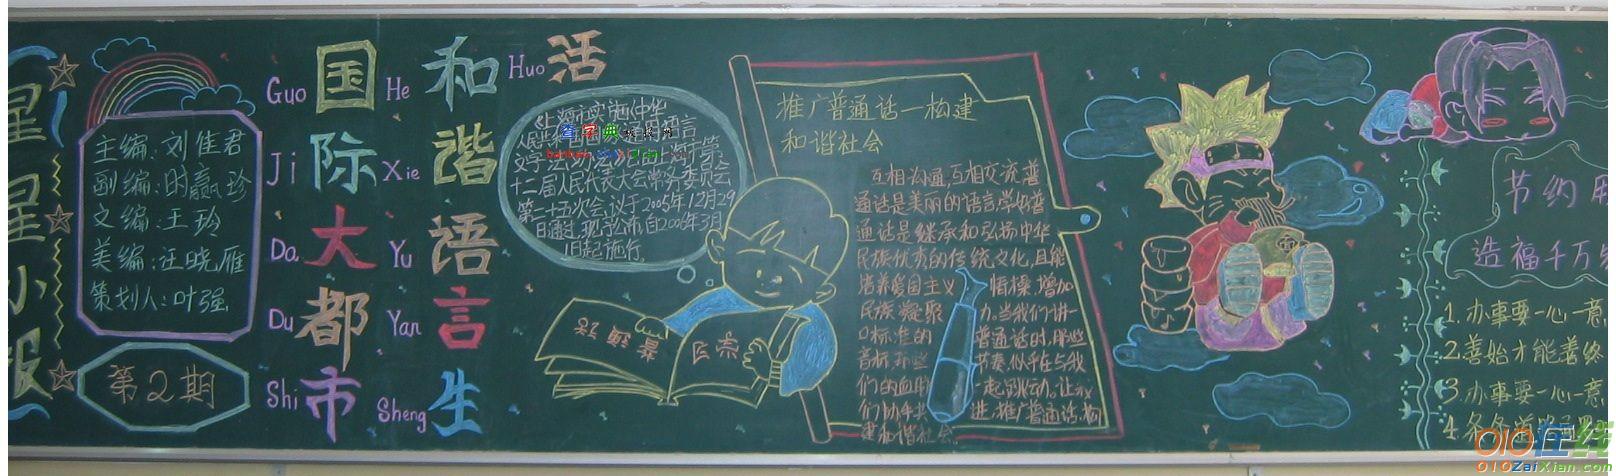 星星小报
主编:刘佳君
副编:田赢珍
文编:王玲
美编:汪晓雁
策划人:叶强
第2期
Guo 国 Ji 际 Da 大 Du 都 Shi 市
He 和 Xie 谐 Yu 语 Yan 言 Sheng 生 Huo 活
《上海市实施《中华
人民共和国国家通用语言
文字法》
十二届人民代表大会常务委员会
第二十五次会议于2005年12月29
日通过,现予公布,自2006年3月
1日起施行。
推广普通话—构建
和谐社会
互相沟通,互相交流,普
通话是美丽的语言学好普
通话是继承和弘扬中华
民族优秀的传统文化,且能
培养爱国主义情操,增加
民族凝聚力。当我们讲一
口标准的普通话时,那些
音标,那些节奏似乎在与我
们的血脉一起跳动。让我
们协手共进,推广普通话,构
建和谐社会。
节约用
造福千万
1.办事要一心一意
2.善始才能善终
3.办事要一心一意
4.条条道路通
查字典
010在线
010ZaiXian.com